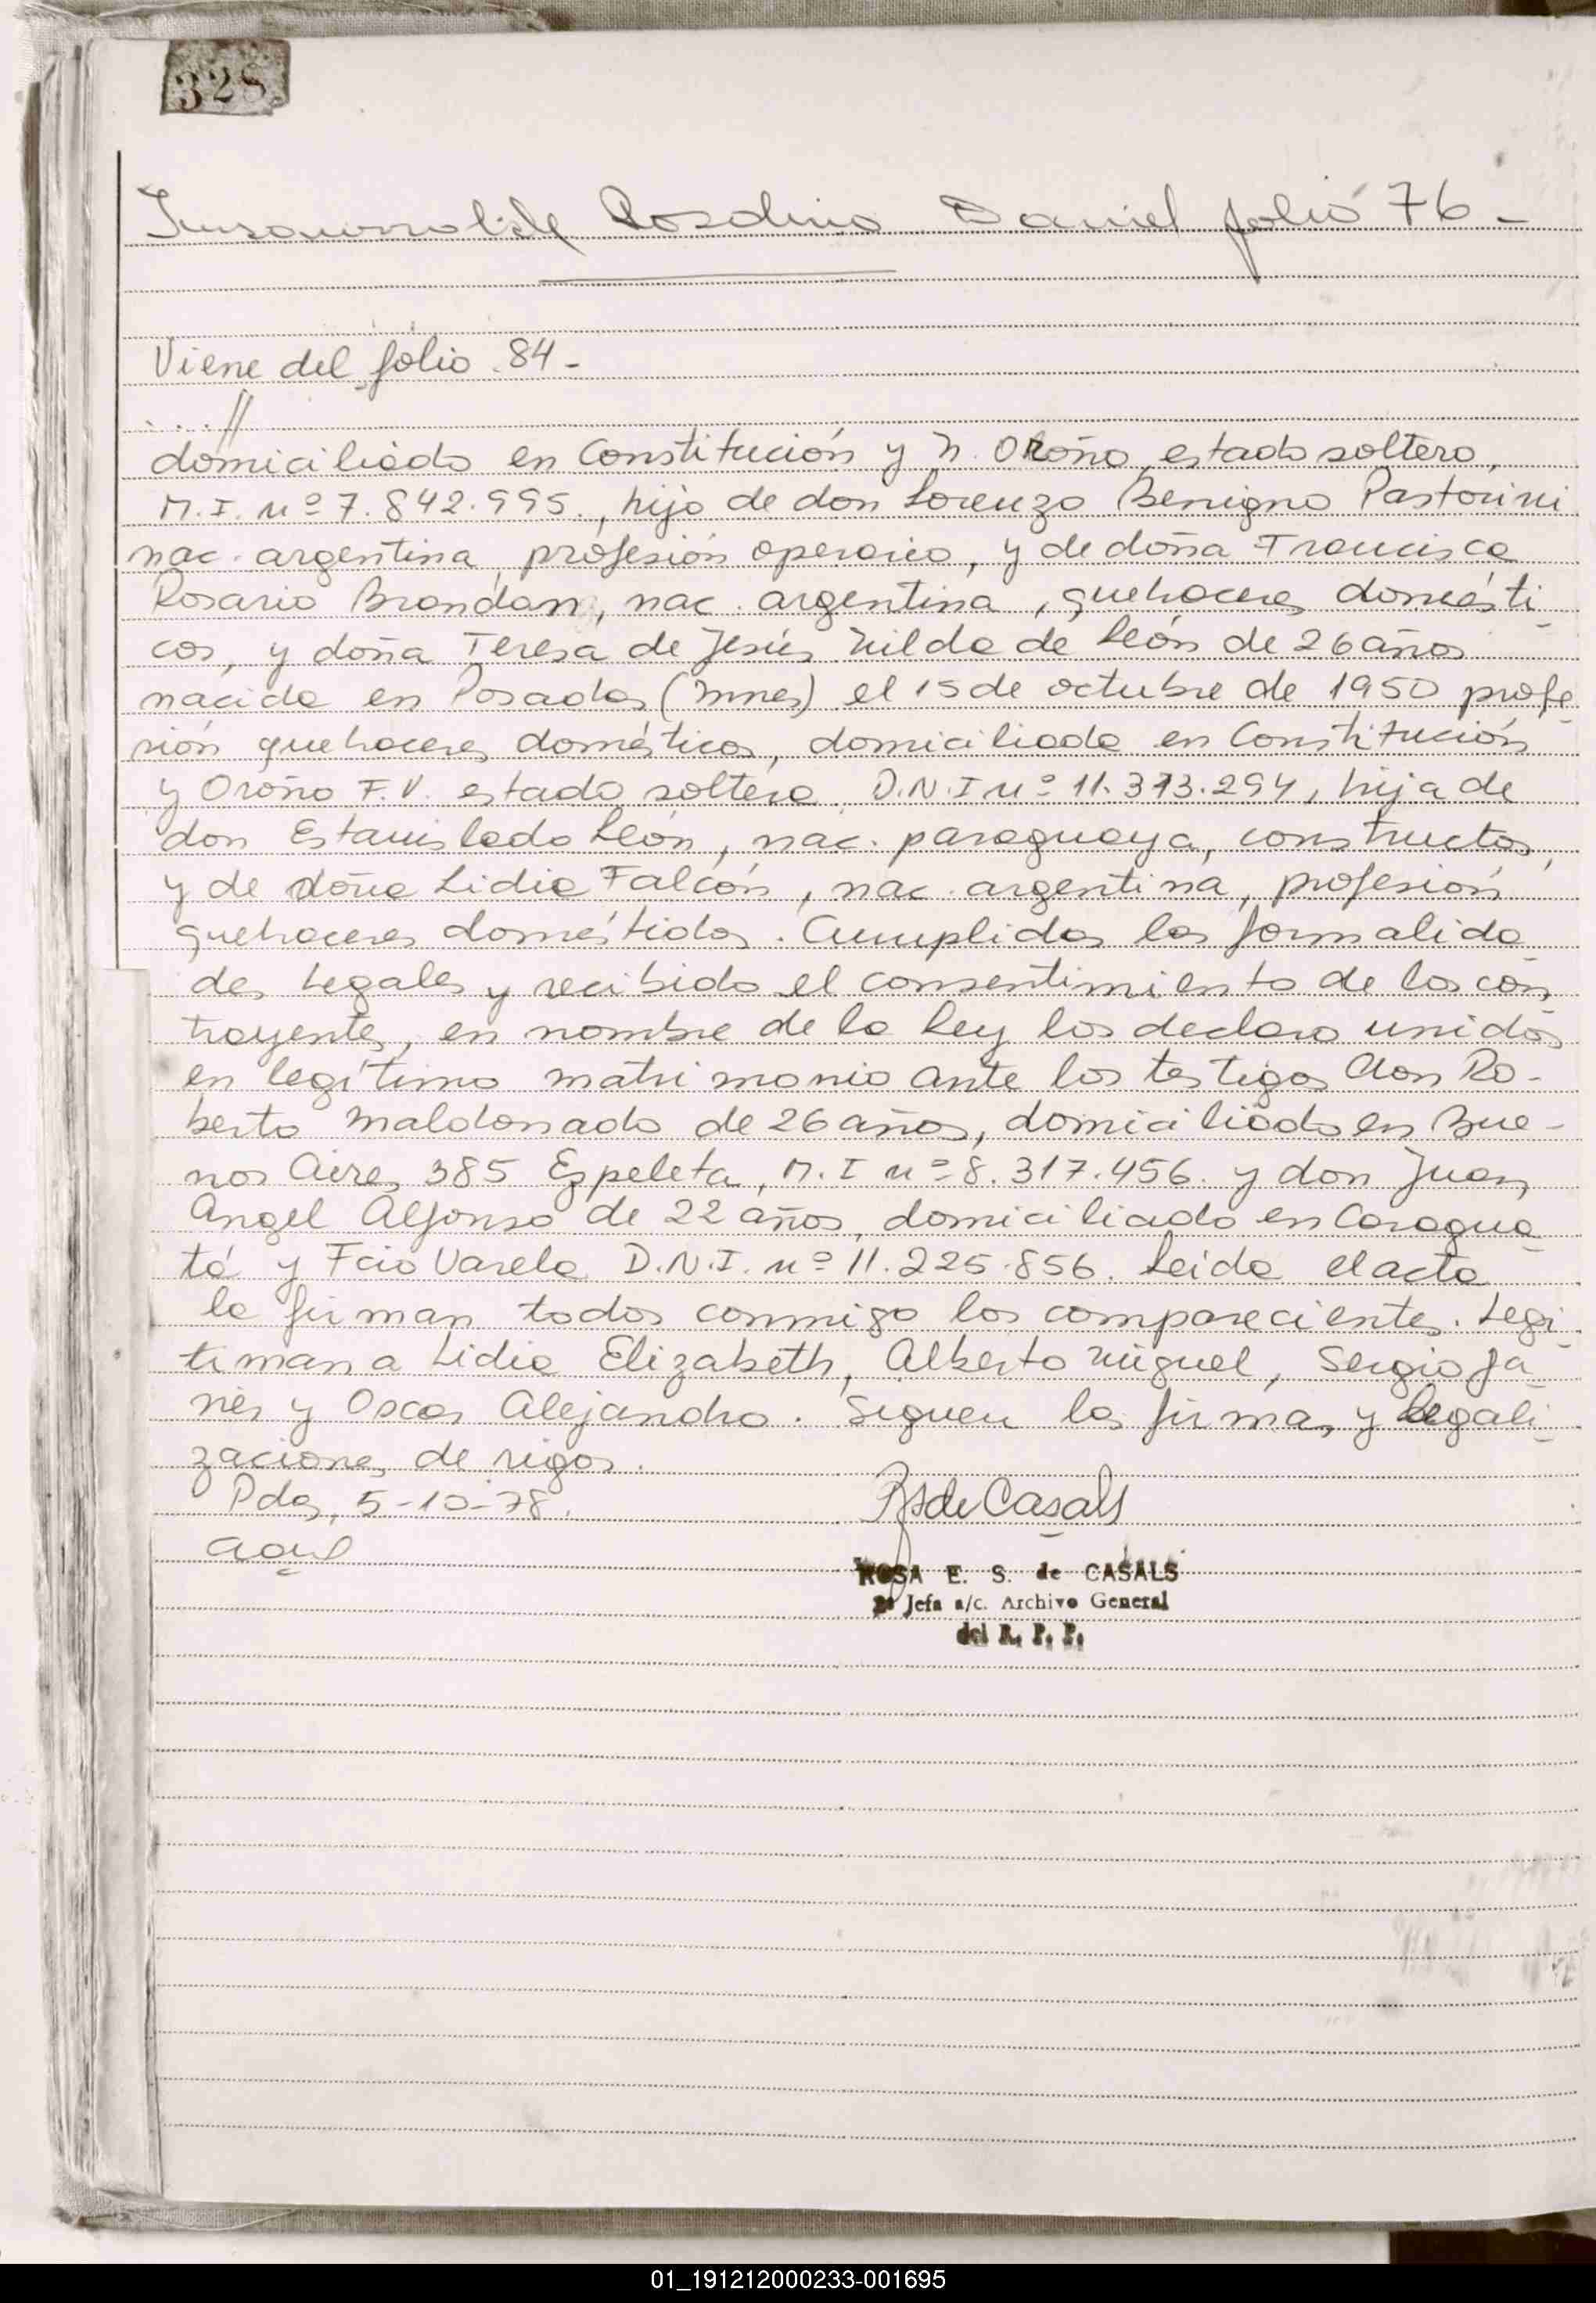 328
Insaurralde Rosalino Daniel folio 76 -
Viene del folio 84 -
....//
domiciliado en Constitución y N. Oroño, estado soltero,
M.I. nº 7.842.995., hijo de don Lorenzo Benigno Pastorini
nac. argentina, profesión operario, y de doña Francisca
Rosario Brandan, nac. argentina, quehaceres domésti
cos, y doña Teresa de Jesús Nilda de León de 26 años
nacida en Posadas (Mnes) el 15 de octubre de 1950 profe
sión quehaceres domésticos, domiciliada en Constitución
y Oroño F.V. estado soltera, D.N.I nº 11.373.294, hija de
don Estanislado León, nac. paraguaya, constructor,
y de doña Lidia Falcón, nac. argentina, profesión
quehaceres doméstidos. Cumplidas las formalida
des legales y recibido el consentimiento de los con
trayentes, en nombre de la Ley los declaro unidos
en legítimo matrimonio ante los testigos don Ro-
berto Maldonado de 26 años, domiciliado en Bue-
nos Aires 385 Ezpeleta, M.I nº 8.317.456. y don Juan
Angel Alfonso de 22 años, domiciliado en Caragua
tá y Fcio Varela D.N.I. nº 11.225.856. Leida el acta
la firman todos conmigo los comparecientes. Legi
timan a Lidia Elizabeth, Alberto Miguel, Sergio Ja
vier y Oscar Alejandro. Siguen las firmas y legali
zaciones de rigor.
Pdas, 5-10-78.
RSdeCasals
ROSA E. S. de CASALS
2ª Jefa a/c. Archivo General
del R. P. P.
01_191212000233-001695